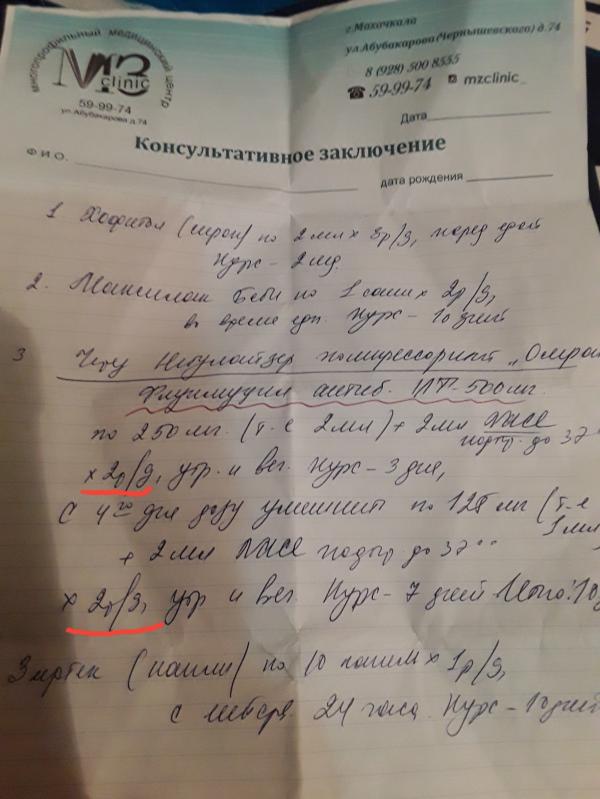 многопрофильный медицинский центр
MB clinic
59-99-74
ул.Абубакарова д.74
г.Махачкала
ул.Абубакарова (Чернышевского) д.74
8 (928) 500 8555
59-99-74 mzclinic_
Дата
Консультативное заключение
Ф И О.
дата рождения
1 Хофитол (сироп) по 2 мл х 3р/д, перед едой
Курс - 2
2. Максилак Беби по 1 саше х 2р/д,
во время еды. Курс - 10 дней
3 Через Небулайзер компрессорный „Омрон
Флуимуцил антиб. ИТ-500мг.
по 250 мг. (т-е 2мл) + 2мл
подогр. до 37°
х 2р/д, утр. и веч. Курс - 3 дня,
С 4го дня дозу уменьшить по 125 мг (т-е
1 мл
+ 2 мл подогр до 37°
х 2р/д, утр и веч. Курс - 7 дней Итого: 10
Зиртек (капли) по 10 капель х 1р/д,
24 часа. Курс - 10 дней